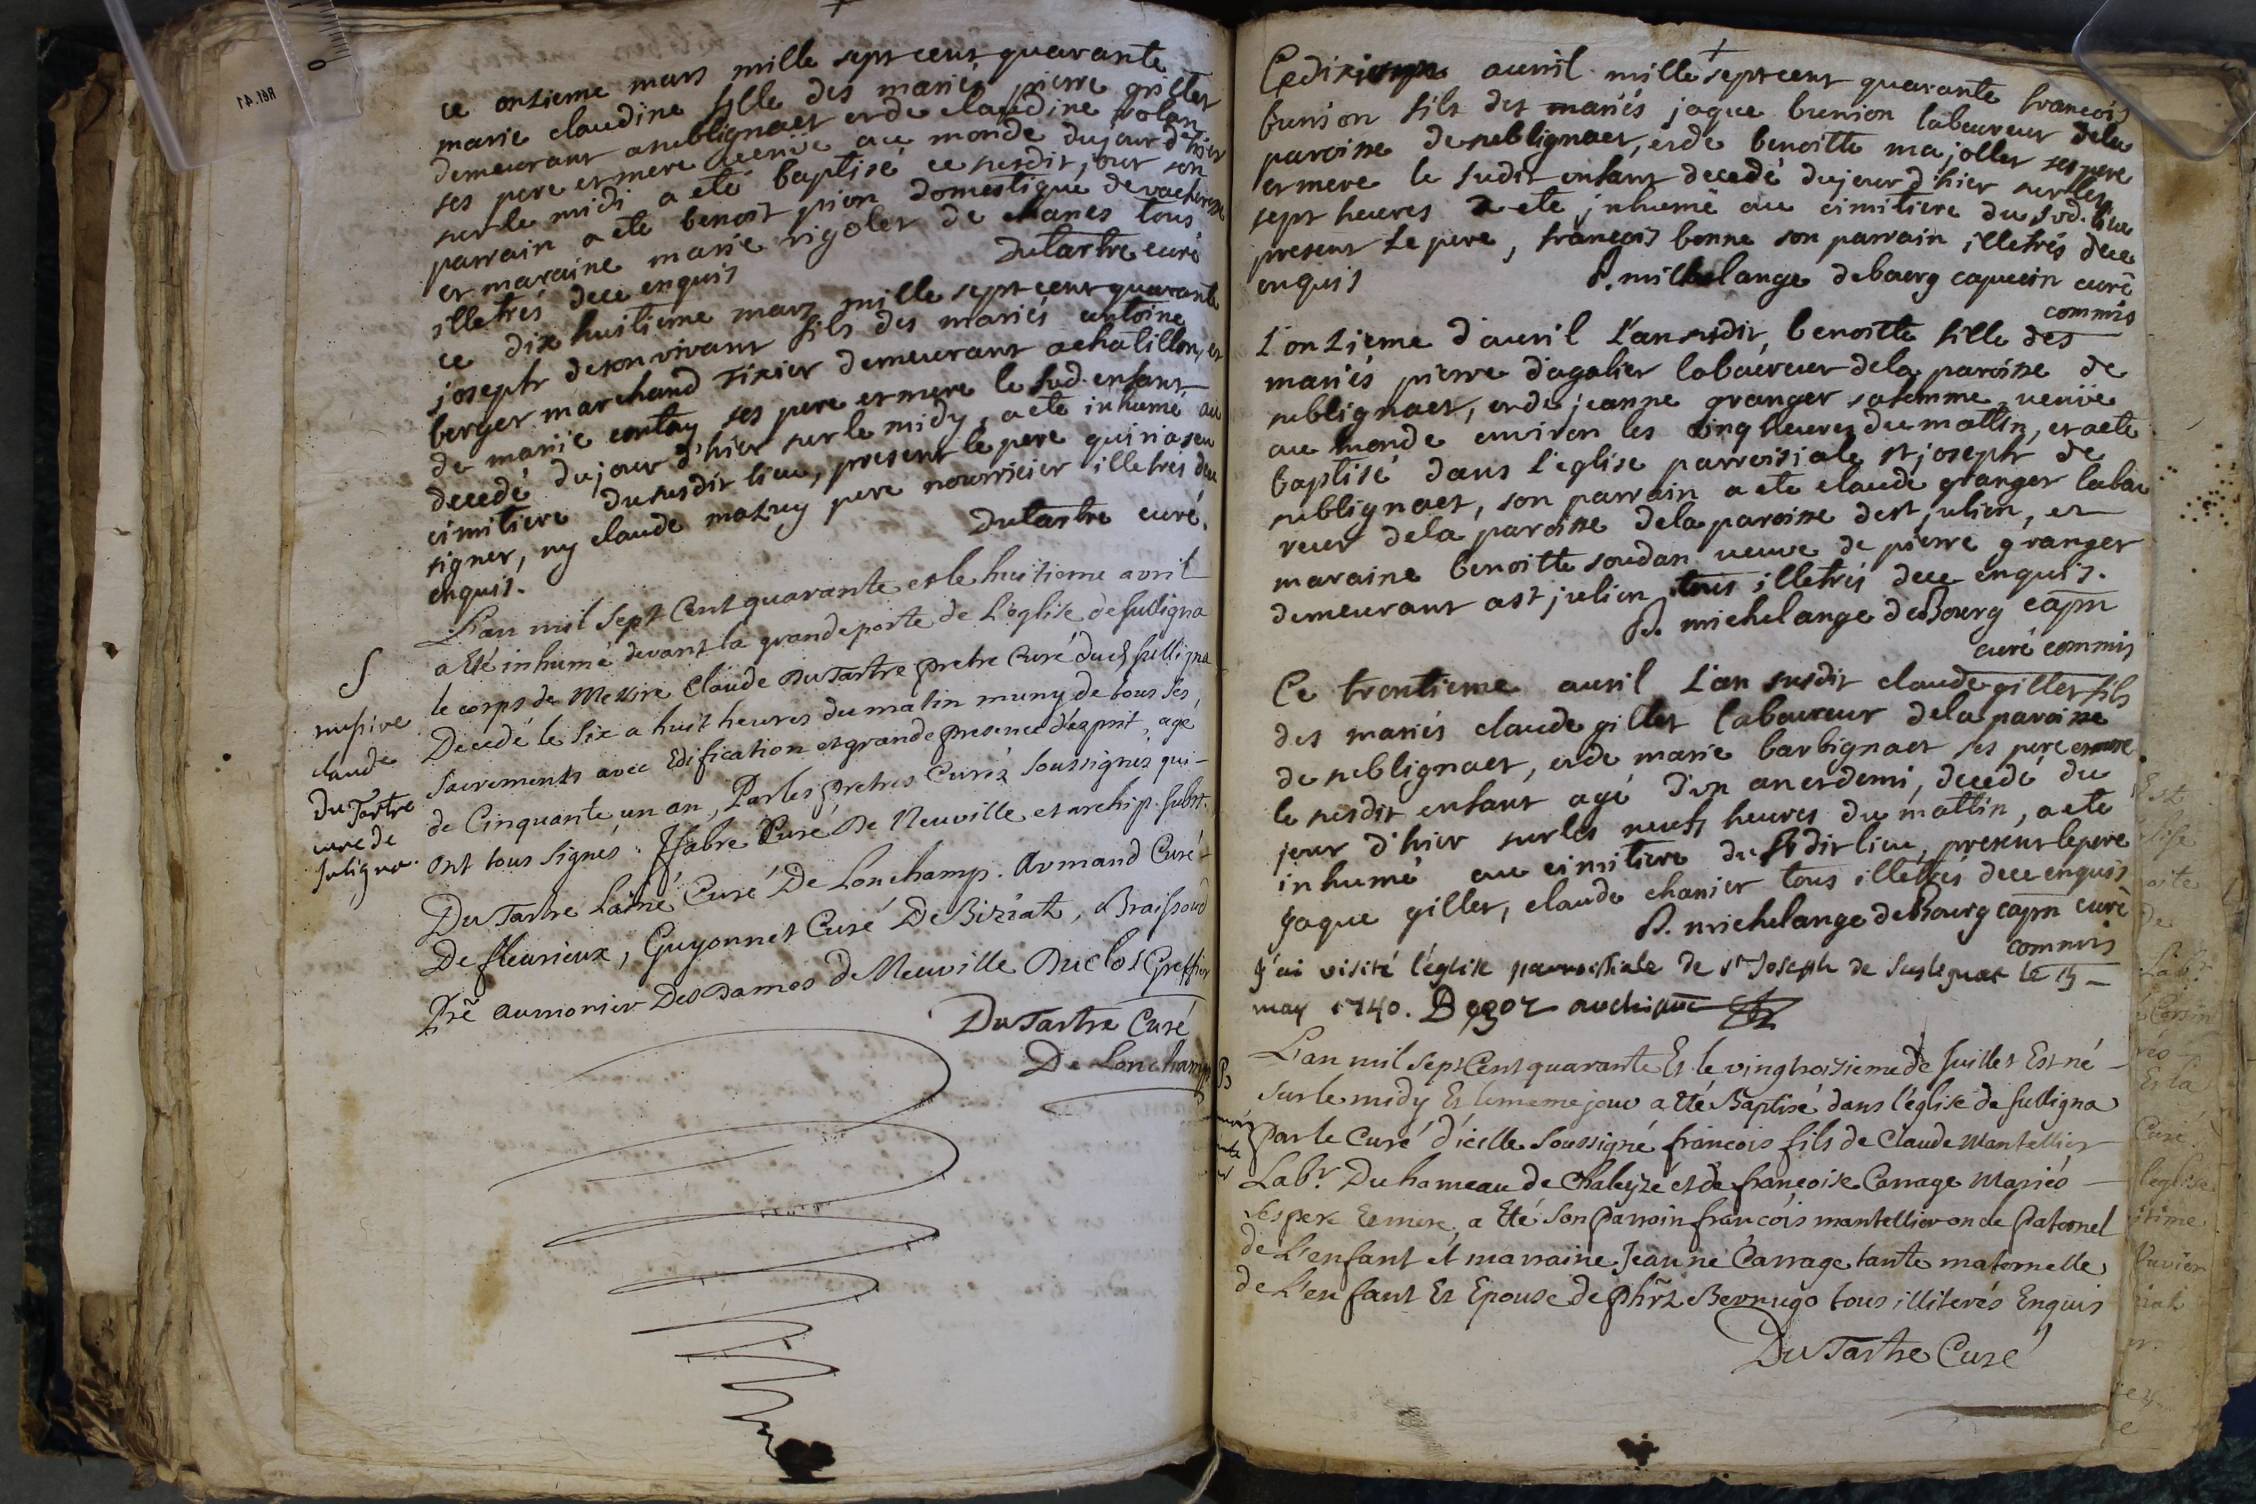 ce onzieme mars mille sept cent quarante
marie claudine fille des mariés pierre gillet
demeurant a sublignaet et de claudine
ses pere et mere venüe au monde du jour d'hier
sur le midi a eté baptisé ce susdit jour son
parrain a eté benoit pion domestique de
et maraine marie rigolet de chanes tous
illetrés dece enquis dutartre curé
ce dix huitieme mars mille sept cent quarante
joseph de son vivant fils des mariés antoine
berger marchand demeurant a chatillon, et
de marie contoy, ses pere et mere le sud. enfant
decedé du jour d'hier sur le midy, a eté inhumé au
cimitiere du susdit lieu, present le pere qui n'a seu
signer, ny claude mazuy pere nourricier illetrés dece
enquis. Dutartre curé.
L'an mil sept Cent quarante et le huitieme avril
a Eté inhumé devant la grande porte de L'eglise de Sulligna
le corps de Messire Claude DuTartre pretre Curé dud. Sulligna
Décedé le Six a huit heures du matin muny de tous Ses
Sacrements avec Edification et grande presence d'esprit, agé
de Cinquante un an, Par les pretres Curés Soussignés qui
Ont tous Signés. Fabre Curé De Neuville et archip. subst.
DuTartre Lainé Curé De Lonchamp. Armand Curé
De fleurieux, Guyonnet Curé De Biziat,
Prẽ aumonier Des Dames de Neuville Duclos Greffier
DuTartre Curé
De Lonchamp
S
messire
claude
DuTartre
curé de
Suligna.
Ce avril mille sept cent quarante francois
bunion fils des mariés jaque bunion laboureur dela
paroisse de sublignaet, et de benoitte majollet ses pere
et mere le sudit enfant decedé du jour d'hier sur les
sept heures a eté inhumé au cimitiere du sud. lieu
present le pere, francois bonne son parrain illetrés dece
enquis P. michelange debourg capucin curé
commis
L'onzieme d'auril l'an susdit, benoitte fille des
mariés pierre dagalier laboureur dela paroisse de
sublignaet, et de jeanne granger sa femme, venüe
au monde environ les cinq heures du mattin, et a eté
baptisé dans l'eglise parroissiale st joseph de
sublignaet, son parrain a eté claude granger labou
reur dela paroisse dela paroisse de st julien, et
maraine benoitte soudan veuve de pierre granger
demeurant a st julien tous illetrés dece enquis.
P. michelange deBourg capn
curé commis
Ce trentieme auril l'an susdit claude gillet fils
des mariés claude gillet laboureur dela paroisse
de sublignaet, et de marie barbignaet ses pere et mere
le susdit enfant agé d'un an et demi, decedé du
jour d'hier sur les neufs heures du mattin, a eté
inhumé au cimitiere du sudit lieu, present le pere
jaque gillet, claude chanier tous illetrés dece enquis
P. michelange deBourg capn curé
commis
J'ai visité l'église parroissiale de st Joseph de le 15
may 1740.
L'an mil sept Cent quarante Et le vingt troisieme de Juillet Est né
sur le midy Et le meme jour a Eté Baptisé dans l'eglise de Sulligna
Par le Curé d'icelle Soussigné françois fils de Claude Mantellier
Labr. Du hameau de Chaleyzé et de françoise Carrage Mariés
Ses pere Et mere, a Eté Son Parrain françois mantellier oncle Paternel
de L'enfant et marraine Jeanne Carrage tante maternelle
de L'enfant Et Epouse de tous illiterés Enquis
DuTartre Curé